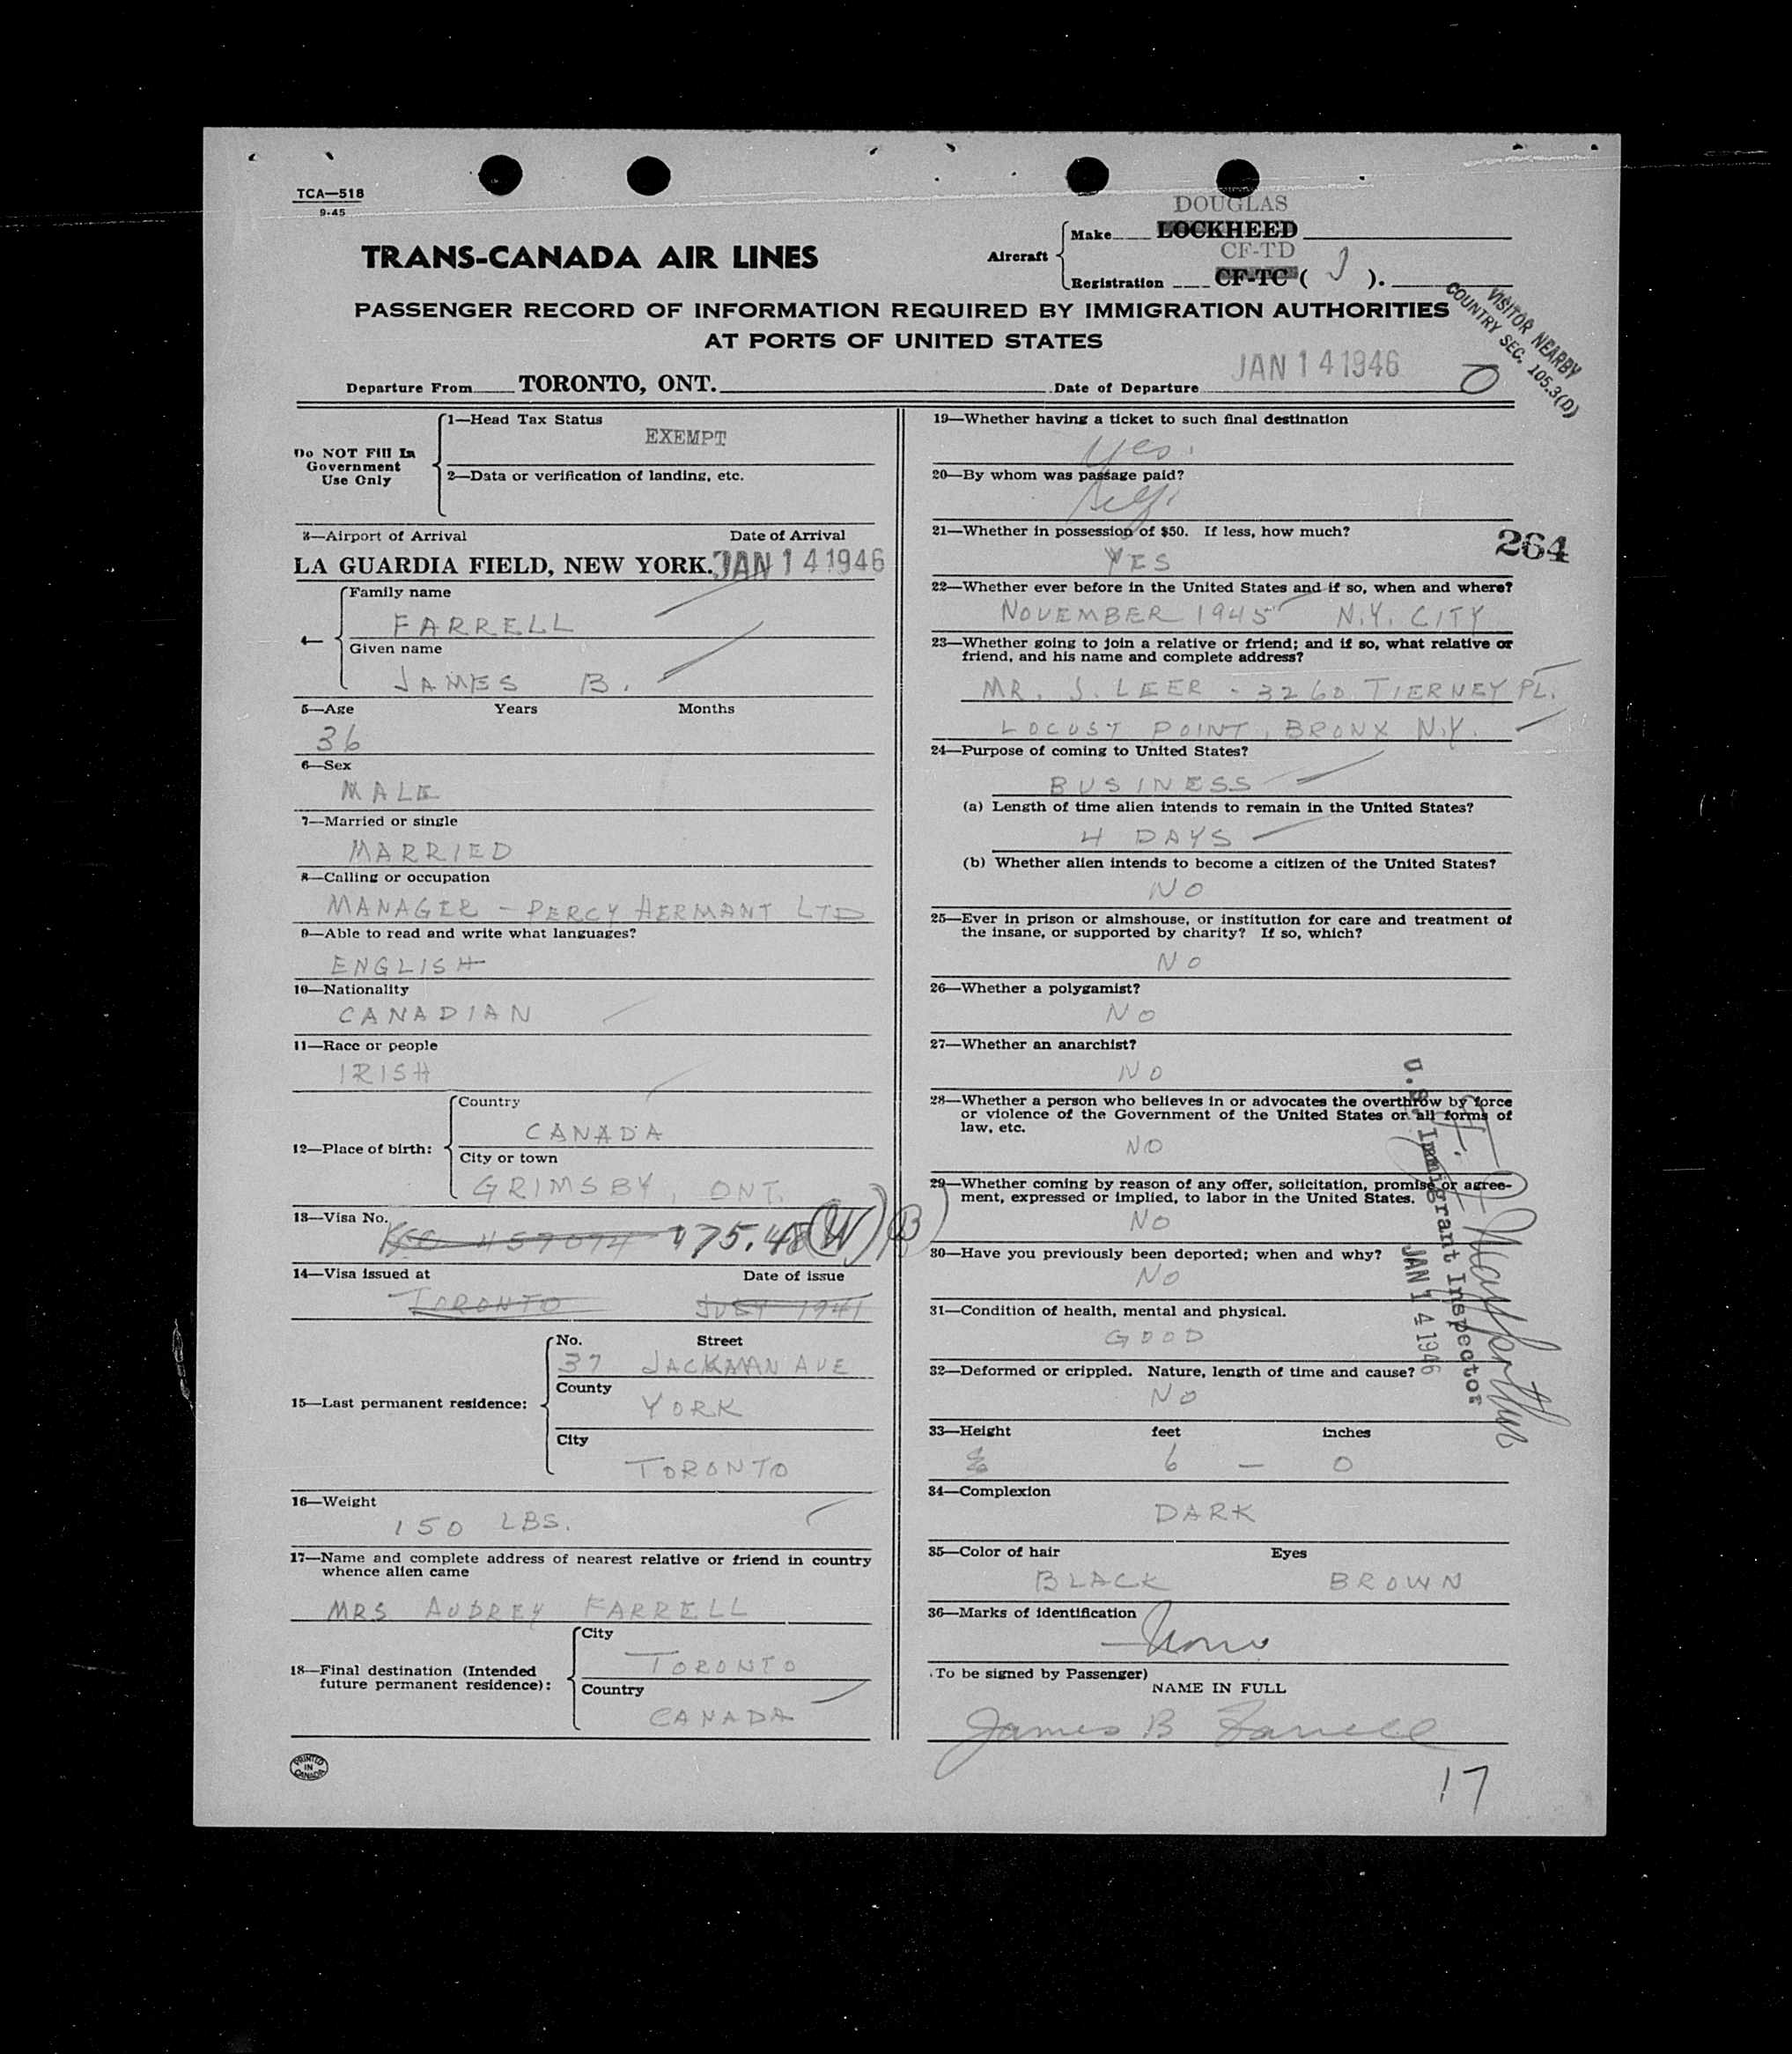 TCA—518
9-45
DOUGLAS
Aircraft
Make LOCKHEED
CF-TD
Registration CF-TC ( J ).
TRANS-CANADA AIR LINES
PASSENGER RECORD OF INFORMATION REQUIRED BY IMMIGRATION AUTHORITIES
AT PORTS OF UNITED STATES
VISITOR NEARBY
COUNTRY SEC. 105.3(D)
Departure From TORONTO, ONT. Date of Departure JAN 14 1946
Do NOT Fill In
Government
Use Only
1—Head Tax Status
EXEMPT
2—Data or verification of landing, etc.
3—Airport of Arrival Date of Arrival
LA GUARDIA FIELD, NEW YORK. JAN 14 1946
4—
Family name
FARRELL
Given name
JAMES B.
5—Age Years Months
36
6—Sex
MALE
7—Married or single
MARRIED
8—Calling or occupation
MANAGER – PERCY HERMANT LTD
9—Able to read and write what languages?
ENGLISH
10—Nationality
CANADIAN
11—Race or people
IRISH
12—Place of birth:
Country
CANADA
City or town
GRIMSBY, ONT.
13—Visa No.
175.48 (W) (B)
14—Visa issued at Date of issue
TORONTO JULY 1941
15—Last permanent residence:
No. Street
37 JACKMAN AVE
County
YORK
City
TORONTO
16—Weight
150 LBS.
17—Name and complete address of nearest relative or friend in country
whence alien came
MRS AUDREY FARRELL
18—Final destination (Intended
future permanent residence):
City
TORONTO
Country
CANADA
PRINTED
IN
CANADA
19—Whether having a ticket to such final destination
Yes.
20—By whom was passage paid?
Self
21—Whether in possession of $50. If less, how much?
YES
264
22—Whether ever before in the United States and if so, when and where?
NOVEMBER 1945 N.Y. CITY
23—Whether going to join a relative or friend; and if so, what relative or
friend, and his name and complete address?
MR. J. LEER - 3260 TIERNEY PL.
LOCUST POINT, BRONX N.Y.
24—Purpose of coming to United States?
BUSINESS
(a) Length of time alien intends to remain in the United States?
4 DAYS
(b) Whether alien intends to become a citizen of the United States?
NO
25—Ever in prison or almshouse, or institution for care and treatment of
the insane, or supported by charity? If so, which?
NO
26—Whether a polygamist?
NO
27—Whether an anarchist?
NO
28—Whether a person who believes in or advocates the overthrow by force
or violence of the Government of the United States or all forms of
law, etc.
NO
29—Whether coming by reason of any offer, solicitation, promise or agree-
ment, expressed or implied, to labor in the United States.
NO
30—Have you previously been deported; when and why?
NO
31—Condition of health, mental and physical.
GOOD
32—Deformed or crippled. Nature, length of time and cause?
NO
U.S. Immigrant Inspector
JAN 14 1946
33—Height feet inches
6 — 0
34—Complexion
DARK
35—Color of hair Eyes
BLACK BROWN
36—Marks of identification
None
(To be signed by Passenger)
NAME IN FULL
James B Farrell
17